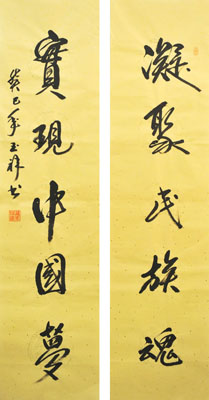 凝聚民族魂
實現中國夢
癸巳年玉祥书